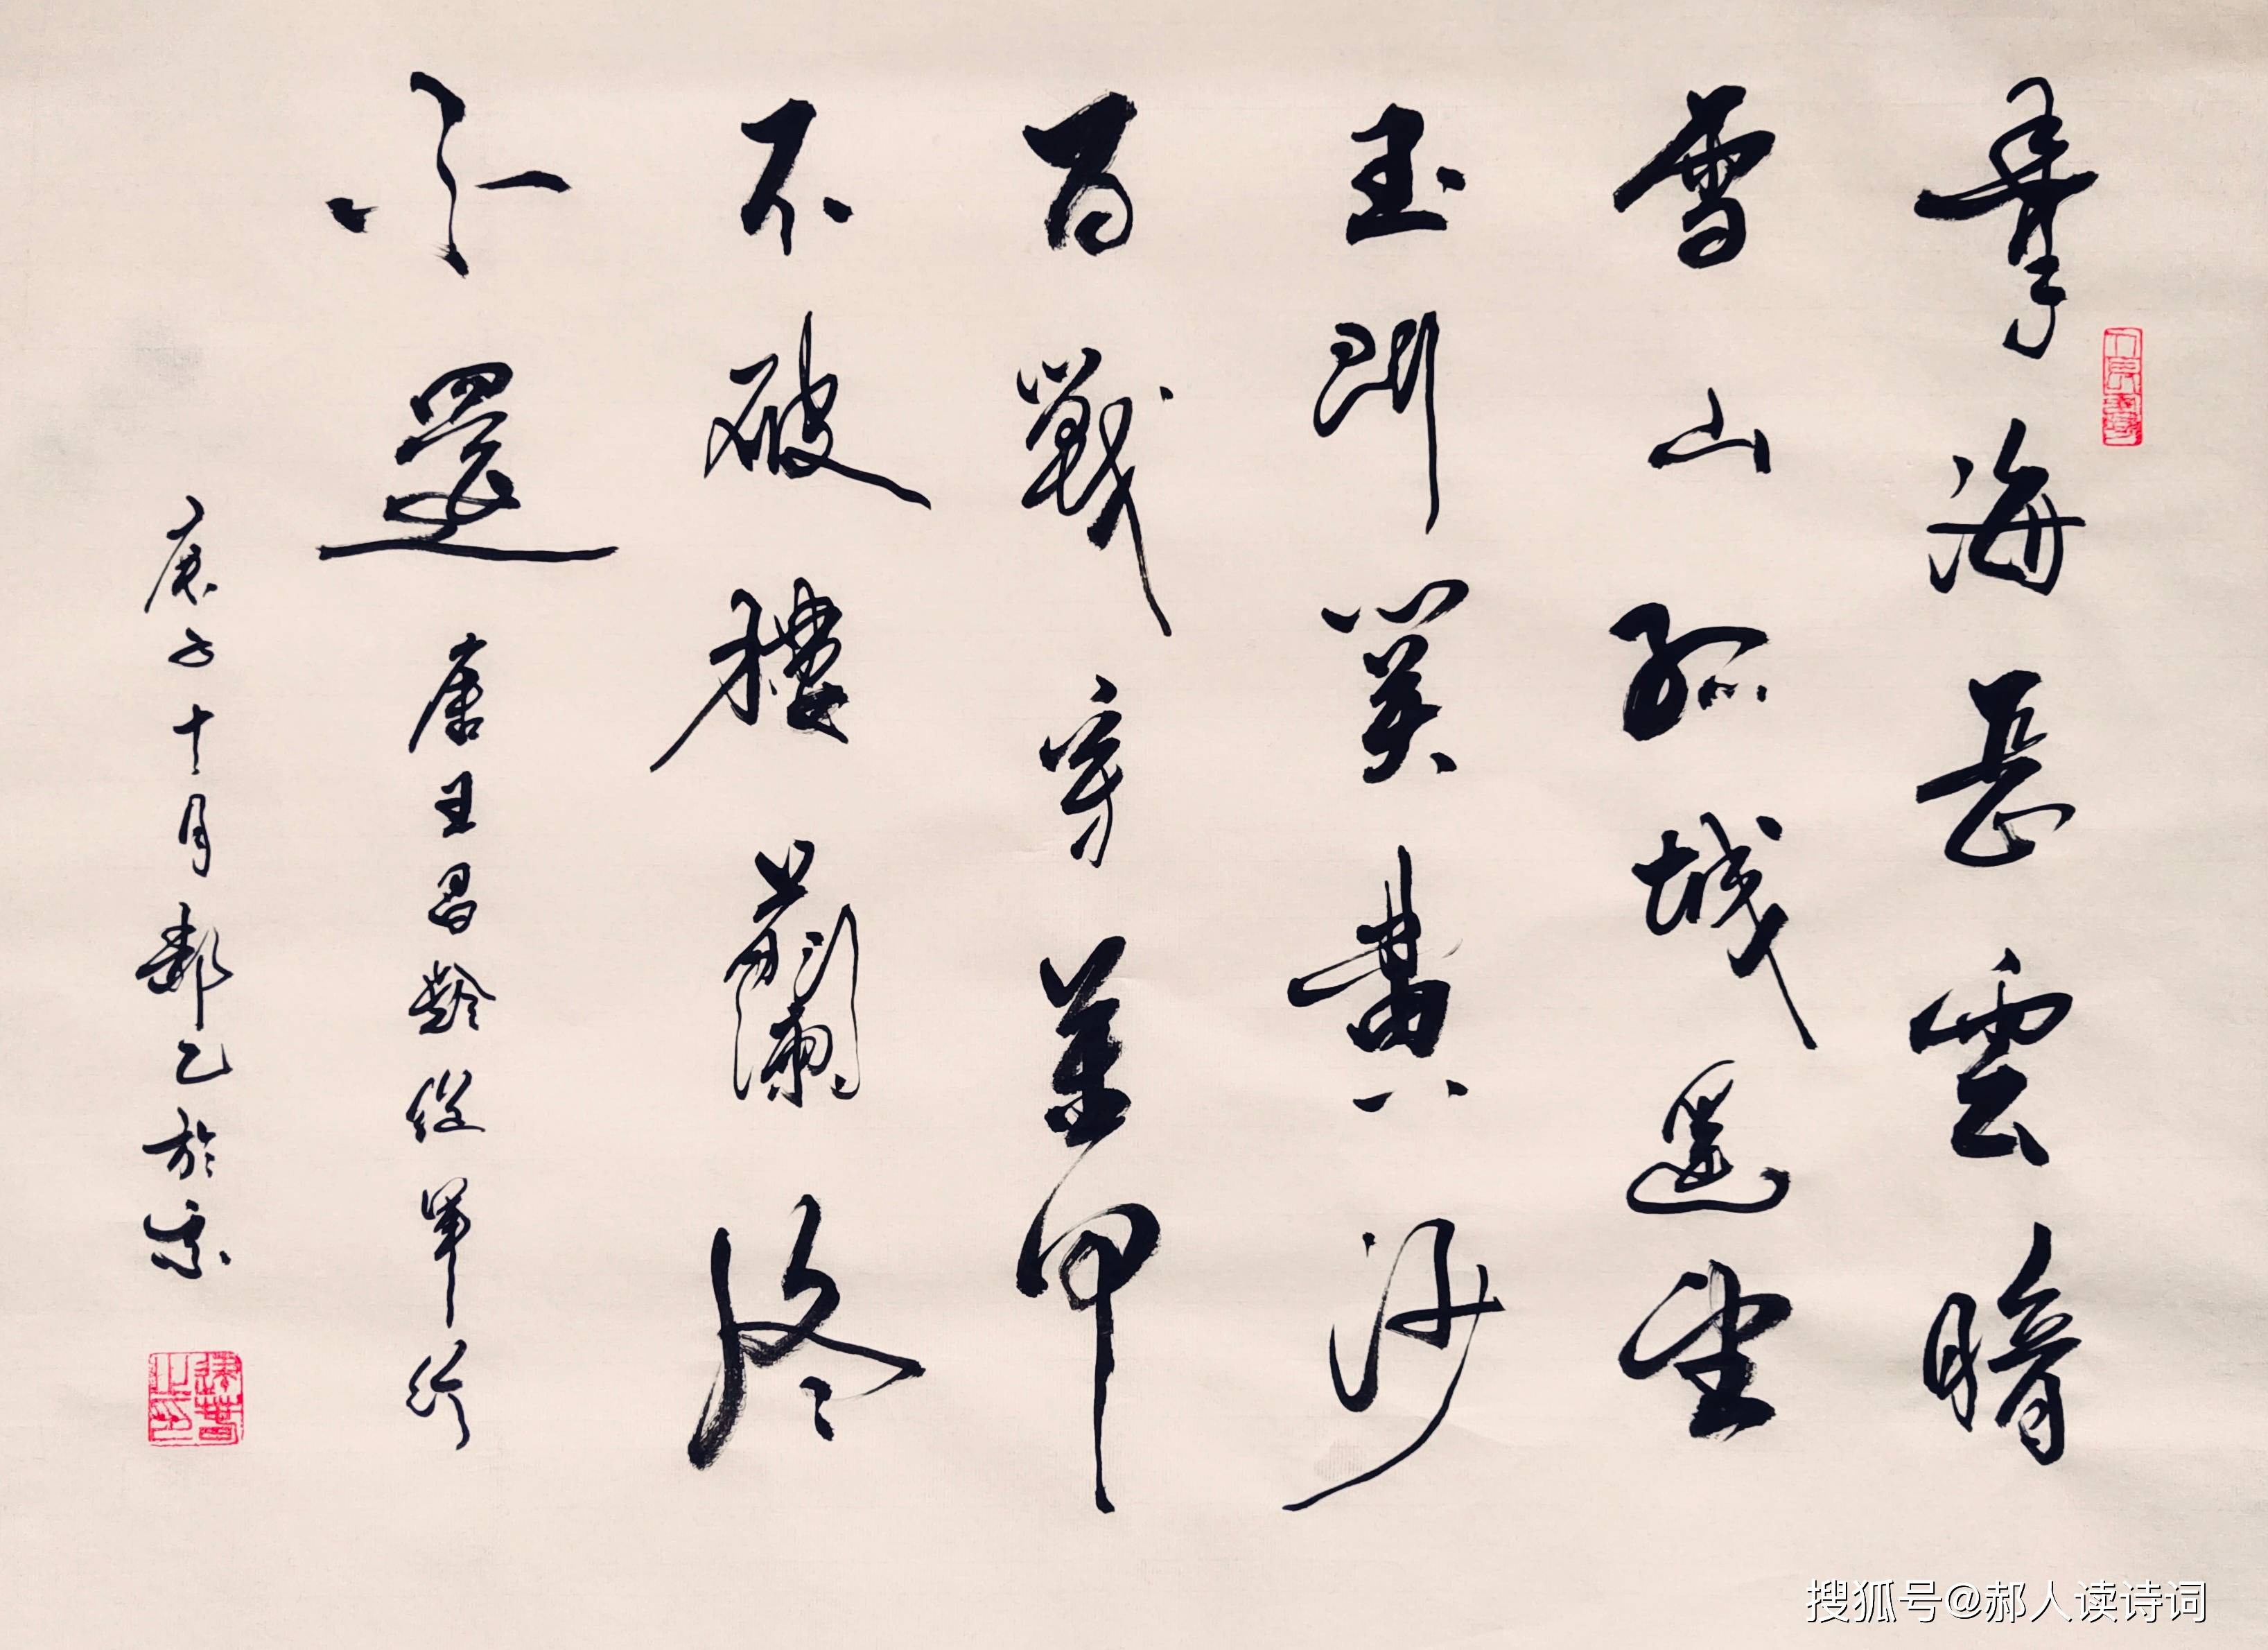 青海長雲暗
雪山孤城遥望
玉門關黄沙
百戰穿金甲
不破樓蘭終
不還 唐王昌齡從軍行
庚子十月郝乙於京
搜狐号@郝人读诗词